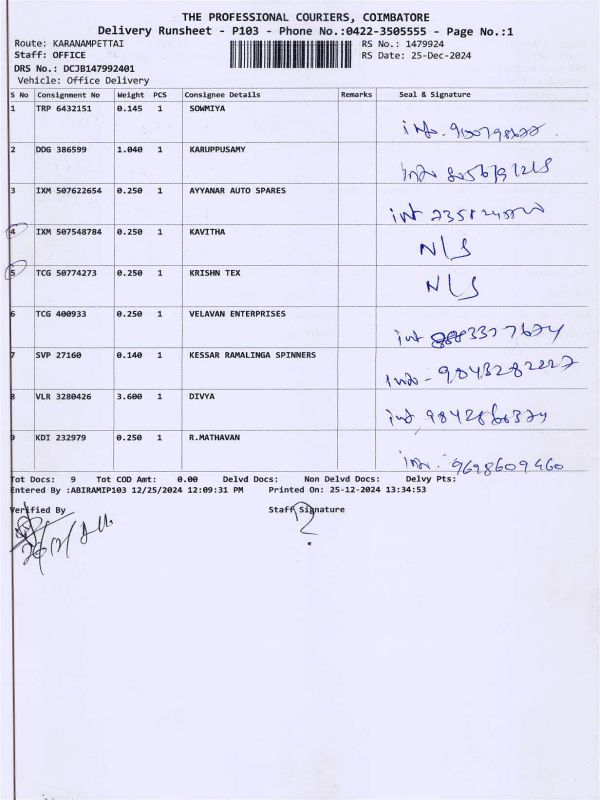 THE PROFESSIONAL COURIERS, COIMBATORE
Delivery Runsheet - P103 - Phone No.:0422-3505555 - Page No.:1
Route: KARANAMPETTAI RS No.: 1479924
Staff: OFFICE RS Date: 25-Dec-2024
DRS No.: DCJB147992401
Vehicle: Office Delivery
S No Consignment No Weight PCS Consignee Details Remarks Seal & Signature
1 TRP 6432151 0.145 1 SOWMIYA
2 DDG 386599 1.040 1 KARUPPUSAMY
3 IXM 507622654 0.250 1 AYYANAR AUTO SPARES
4 IXM 507548784 0.250 1 KAVITHA
NLS
5 TCG 50774273 0.250 1 KRISHN TEX
NLS
6 TCG 400933 0.250 1 VELAVAN ENTERPRISES
7 SVP 27160 0.140 1 KESSAR RAMALINGA SPINNERS
8 VLR 3280426 3.600 1 DIVYA
9 KDI 232979 0.250 1 R.MATHAVAN
9698609460
Tot Docs: 9 Tot COD Amt: 0.00 Delvd Docs: Non Delvd Docs: Delvy Pts:
Entered By :ABIRAMIP103 12/25/2024 12:09:31 PM Printed On: 25-12-2024 13:34:53
Verified By Staff Signature